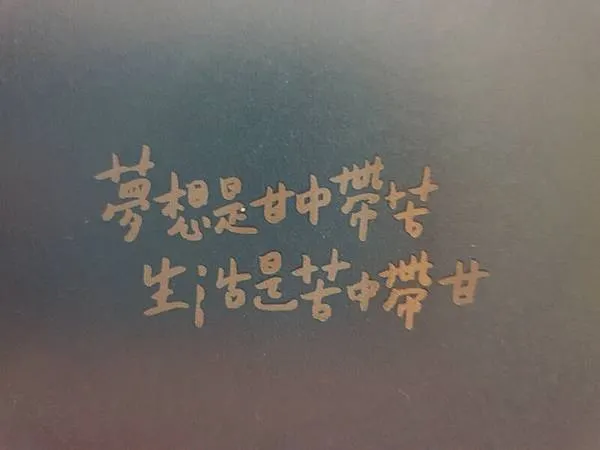 夢想是甘中帶苦
生活是苦中帶甘